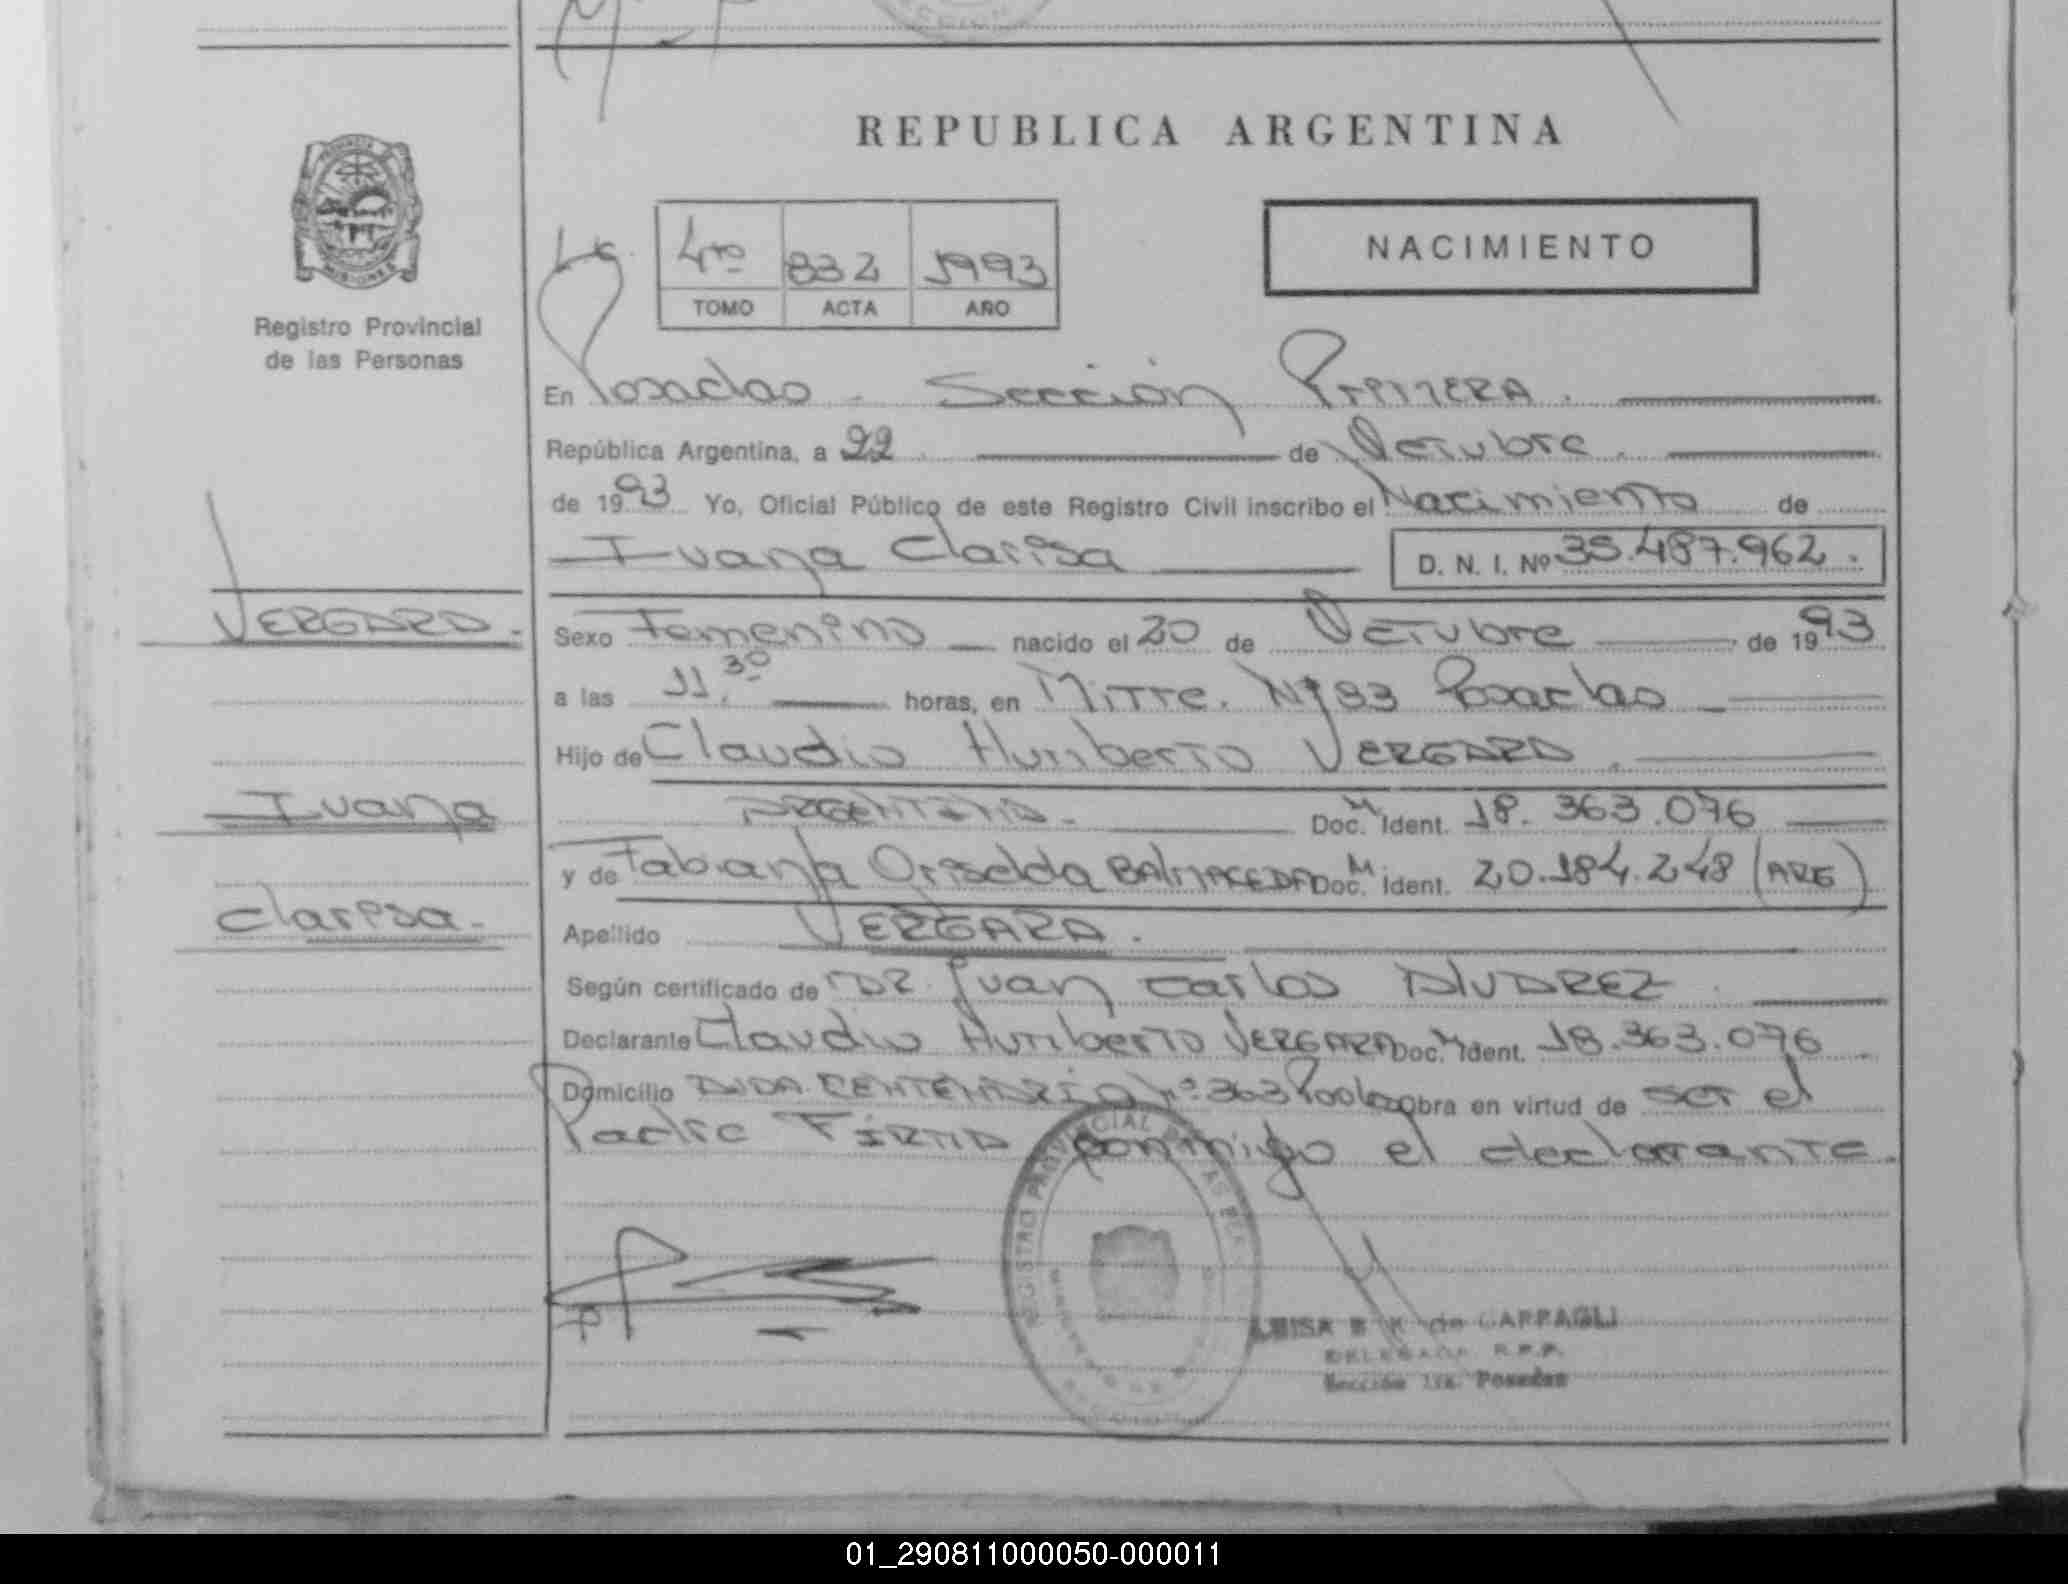 REPUBLICA ARGENTINA
PROVINCIA
MISIONES
Registro Provincial
de las Personas
4to 832 1993
TOMO ACTA AÑO
NACIMIENTO
En Posadas - Sección PRIMERA.
República Argentina, a 22 de Octubre.
de 1993 Yo, Oficial Público de este Registro Civil inscribo el Nacimiento de
Ivana Clarisa
D. N. I. Nº 35.487.962.
VERGARA.
Sexo Femenino nacido el 20 de Octubre de 1993
a las 11.30 horas, en Mitre. Nº 93 Posadas
Hijo de Claudio Humberto VERGARA.
Ivana
ARGENTINA. Doc. Ident. 18.363.076
y de Fabiana Griselda BALMACEDA Doc. Ident. 20.184.248 (ARG)
Clarisa.
Apellido VERGARA.
Según certificado de DR. Juan Carlos ALVAREZ.
Declarante Claudio Humberto VERGARA Doc. Ident. 18.363.076
Domicilio AVDA. CENTENARIO Nº 363 obra en virtud de ser el
Padre FIRMA conmigo el declarante.
REGISTRO PROVINCIAL
de CAPPAGLI
DELEGADA R.P.P.
Sección 1ra. Posadas
01_290811000050-000011